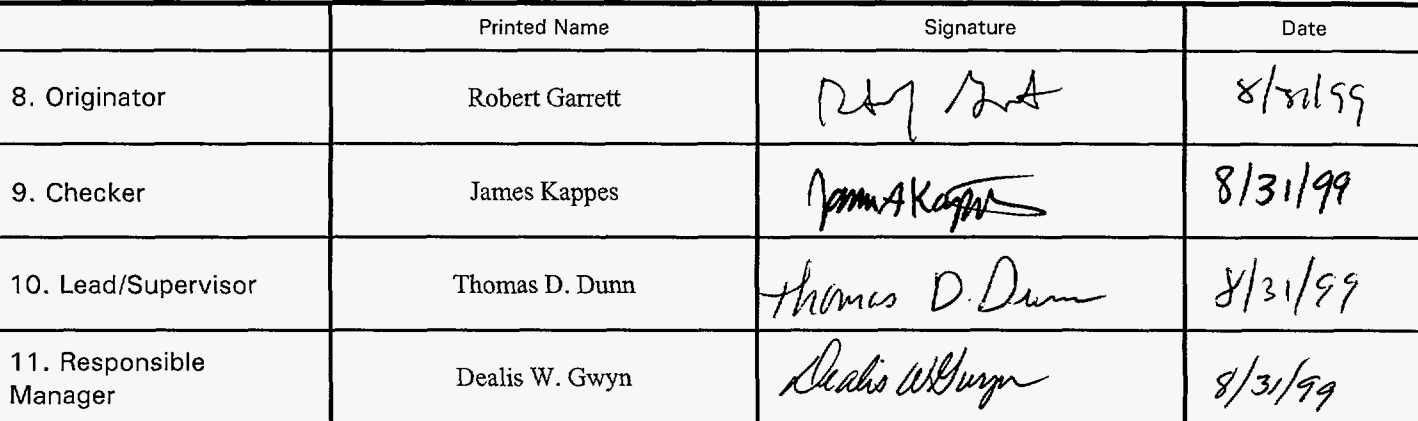 Printed Name Signature Date
8. Originator Robert Garrett 8/31/99
9. Checker James Kappes James A Kappes 8/31/99
10. Lead/Supervisor Thomas D. Dunn Thomas D. Dunn 8/31/99
11. Responsible
Manager Dealis W. Gwyn Dealis W Gwyn 8/31/99